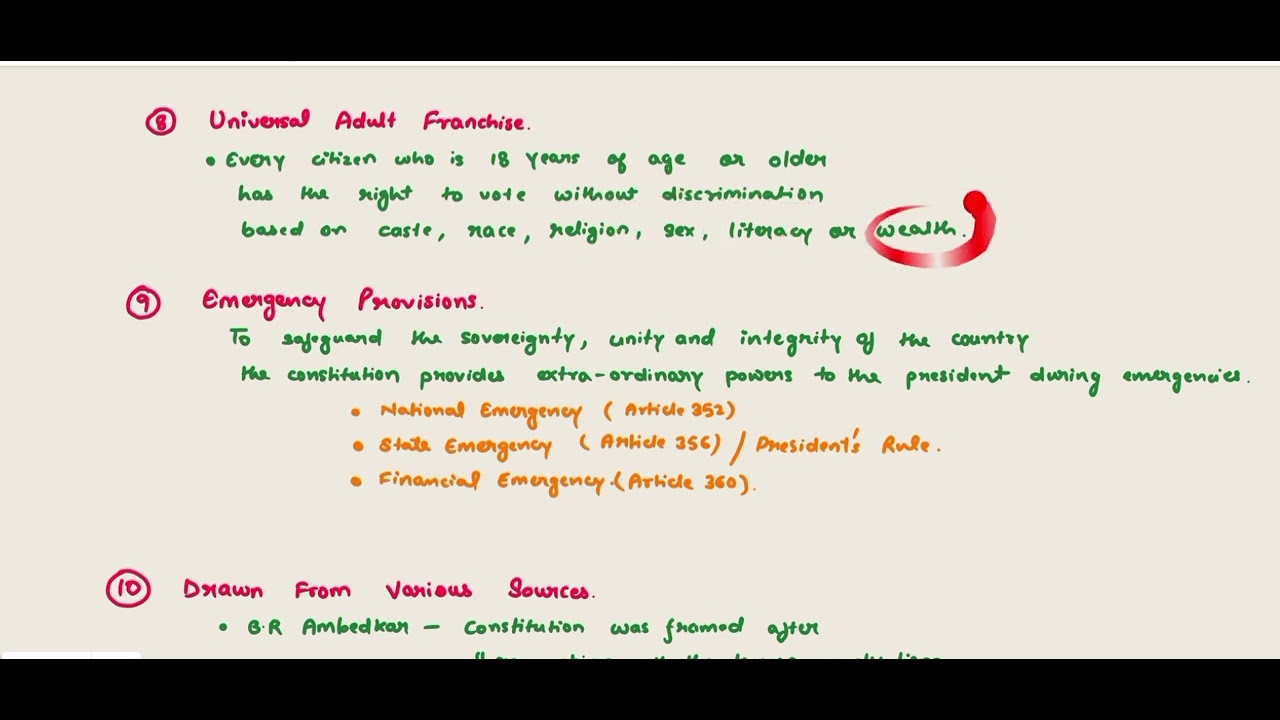 ⑧ Universal Adult Franchise.
• Every citizen who is 18 years of age or older
has the right to vote without discrimination
based on caste, race, religion, sex, literacy or wealth.
⑨ Emergency Provisions.
To safeguard the sovereignty, unity and integrity of the country
the constitution provides extra-ordinary powers to the president during emergencies.
• National Emergency ( Article 352)
• State Emergency ( Article 356) / President's Rule.
• Financial Emergency.(Article 360).
⑩ Drawn From Various Sources.
• B.R Ambedkar – Constitution was framed after